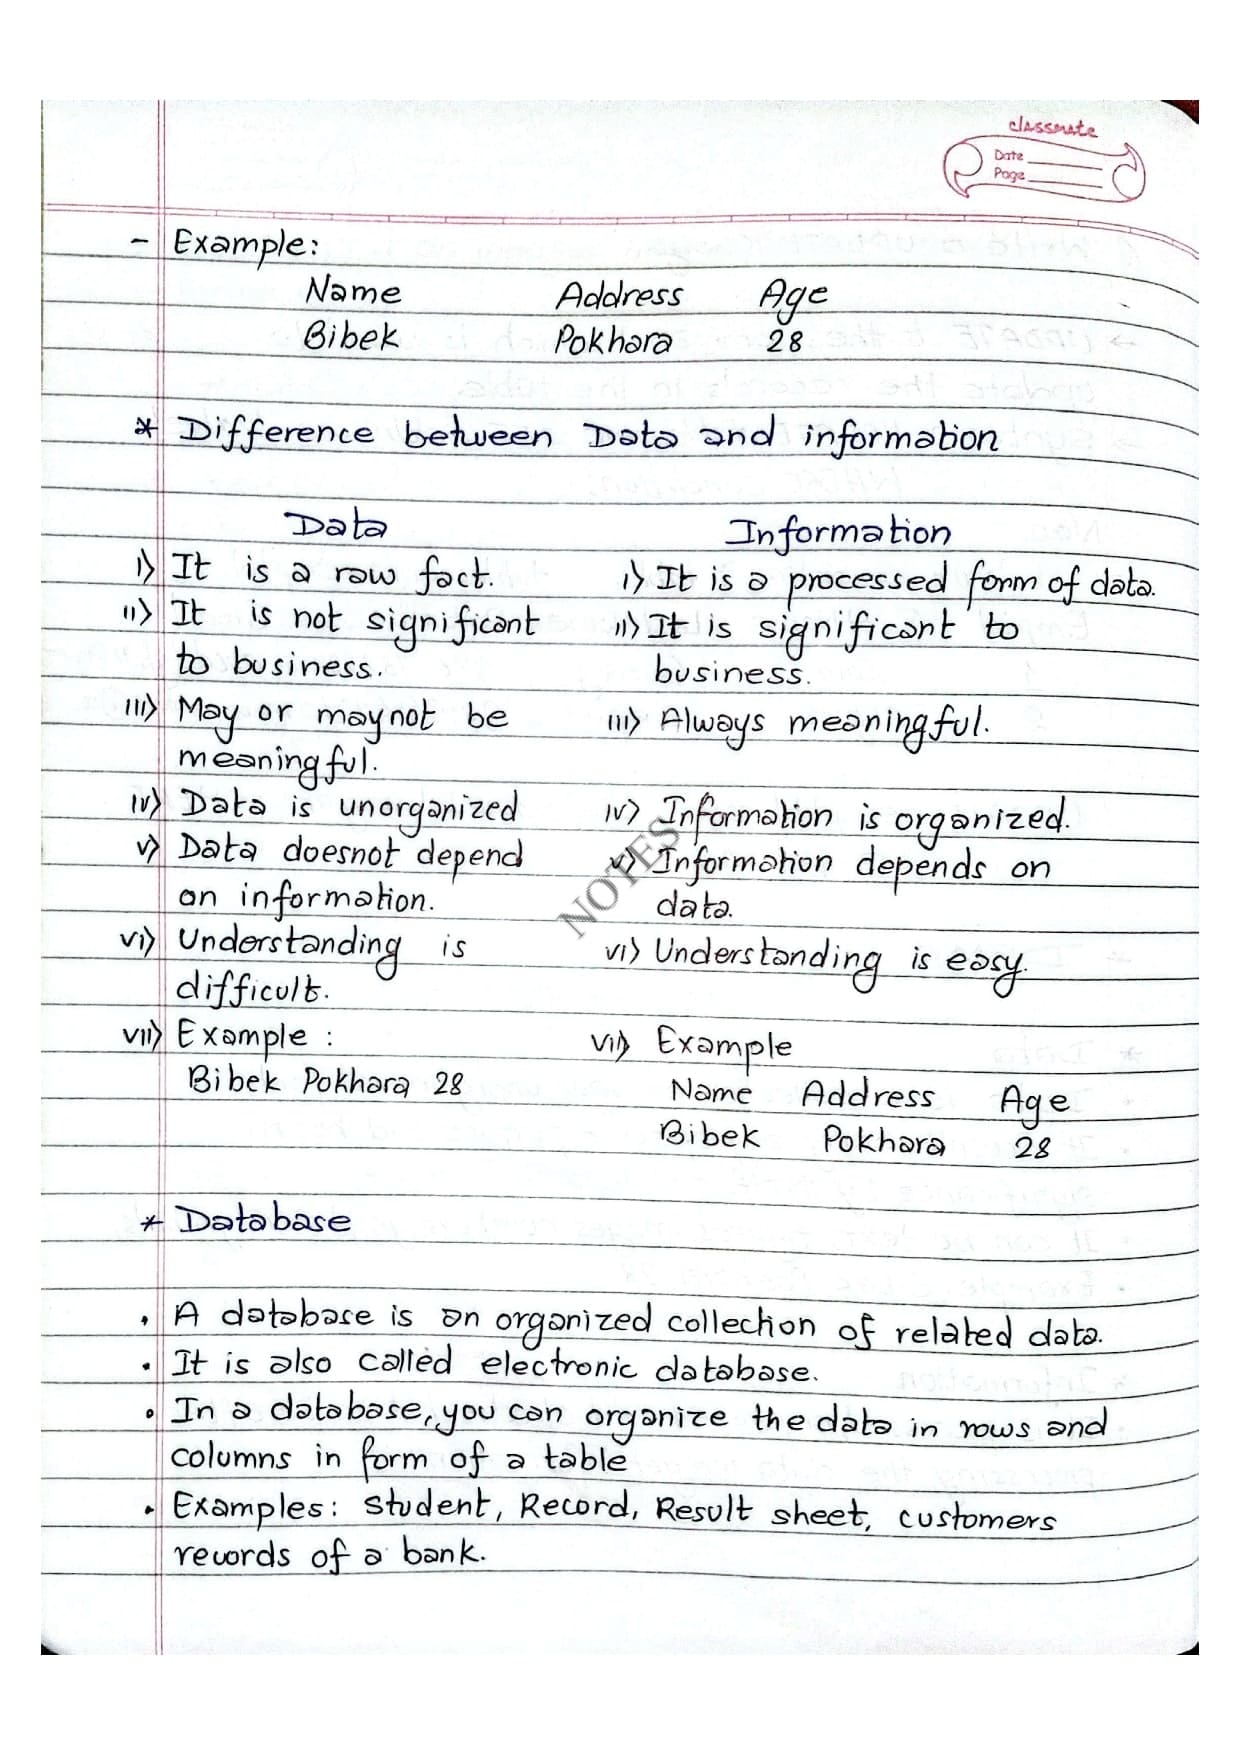 classmate
Date
Page
- Example:
Name Address Age
Bibek Pokhara 28
* Difference between Data and information
Data Information
i) It is a raw fact. i) It is a processed form of data.
ii) It is not significant ii) It is significant to
to business. business.
iii) May or maynot be iii) Always meaningful.
meaningful.
iv) Data is unorganized iv) Information is organized.
v) Data doesnot depend v) Information depends on
on information. data.
NOTES
vi) Understanding is vi) Understanding is easy.
difficult.
vii) Example : vii) Example
Bibek Pokhara 28 Name Address Age
Bibek Pokhara 28
* Database
• A database is an organized collection of related data.
• It is also called electronic database.
• In a database, you can organize the data in rows and
columns in form of a table
• Examples: Student, Record, Result sheet, customers
records of a bank.